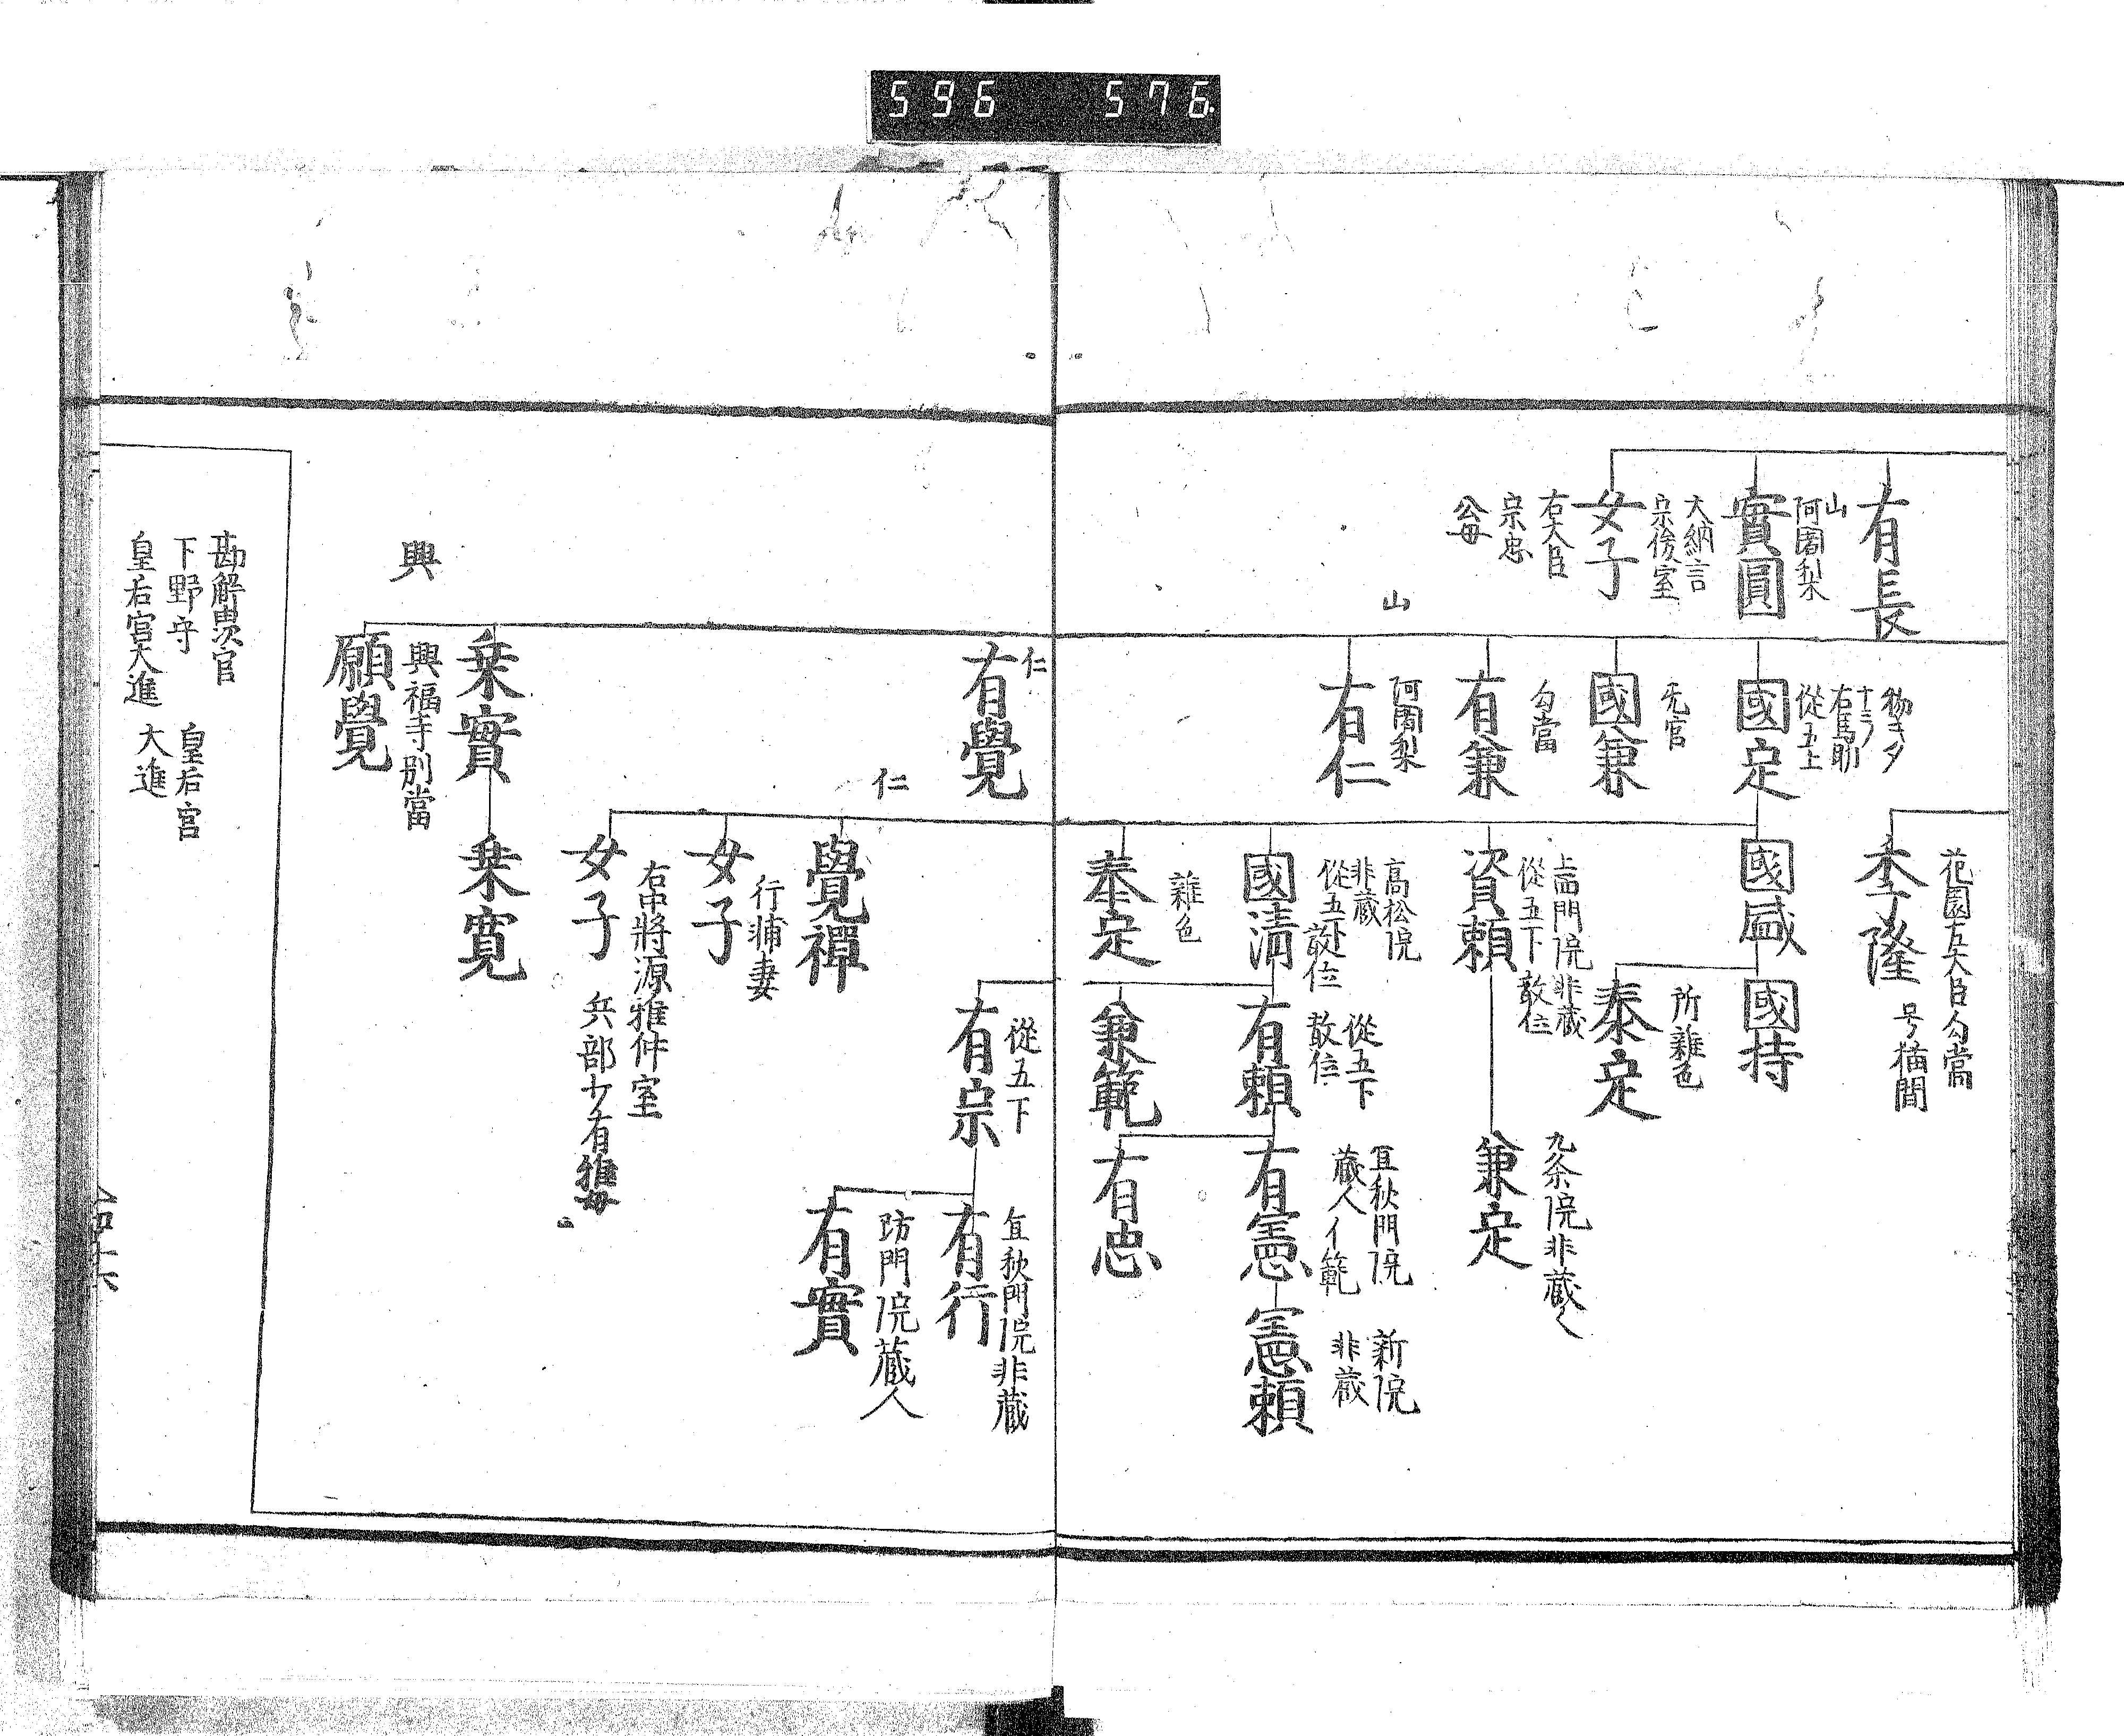 596 576
有長
山
阿闍梨
實圓
大納言
宗俊室
女子
右大臣
宗忠
公母
右馬助
從五上
國定
无官
國兼
勾當
有兼
山
阿闍梨
有仁
花園左大臣勾當
号猫間
季隆
國盛
國持
所雜色
泰定
上西門院非蔵
從五下 散位
資頼
九条院非蔵人
兼定
高松院
非蔵
從五下
散位
國清
從五下
散位
有頼
宜秋門院
蔵人イ範
有憲
新院
非蔵
憲頼
雜色
泰定
兼範
有忠
仁
有覺
從五下
有宗
宜秋門院非蔵
有行
防門院蔵人
有實
仁
覺禅
行浦妻
女子
右中將源雅仲室
兵部少有雅母
女子
乗實
乗寛
興
興福寺別當
願覺
勘解由次官
下野守 皇后宮
皇后宮大進 大進